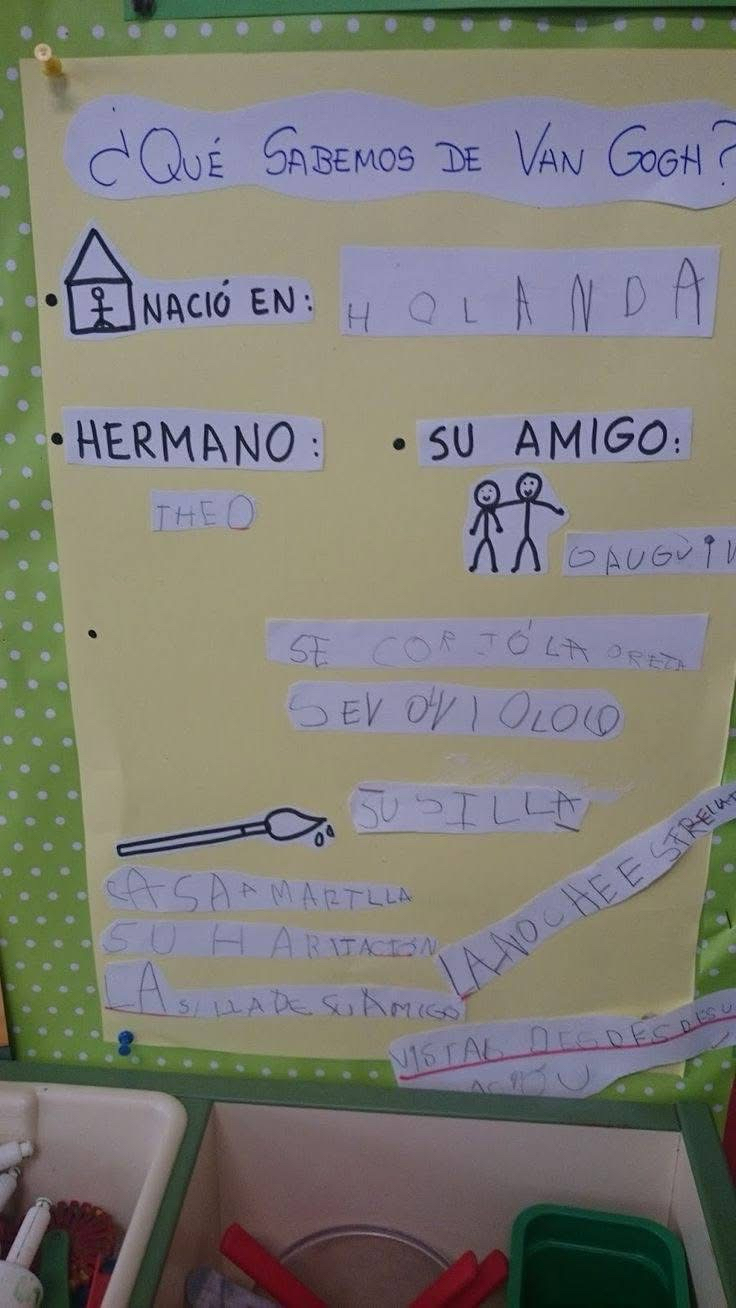 ¿QUÉ SABEMOS DE VAN GOGH?
NACIÓ EN: HOLANDA
HERMANO:
THEO
SU AMIGO:
GAUGÙIN
SE CORJÓ LA OREZA
SEVOLVIOLOCO
SU SILLA
CASA AMARTLLA
SU HABITACIÓN
LA SILLA DE SU AMIGO
LA NOCHE ESTRELLA
VISTAS DESDE SU